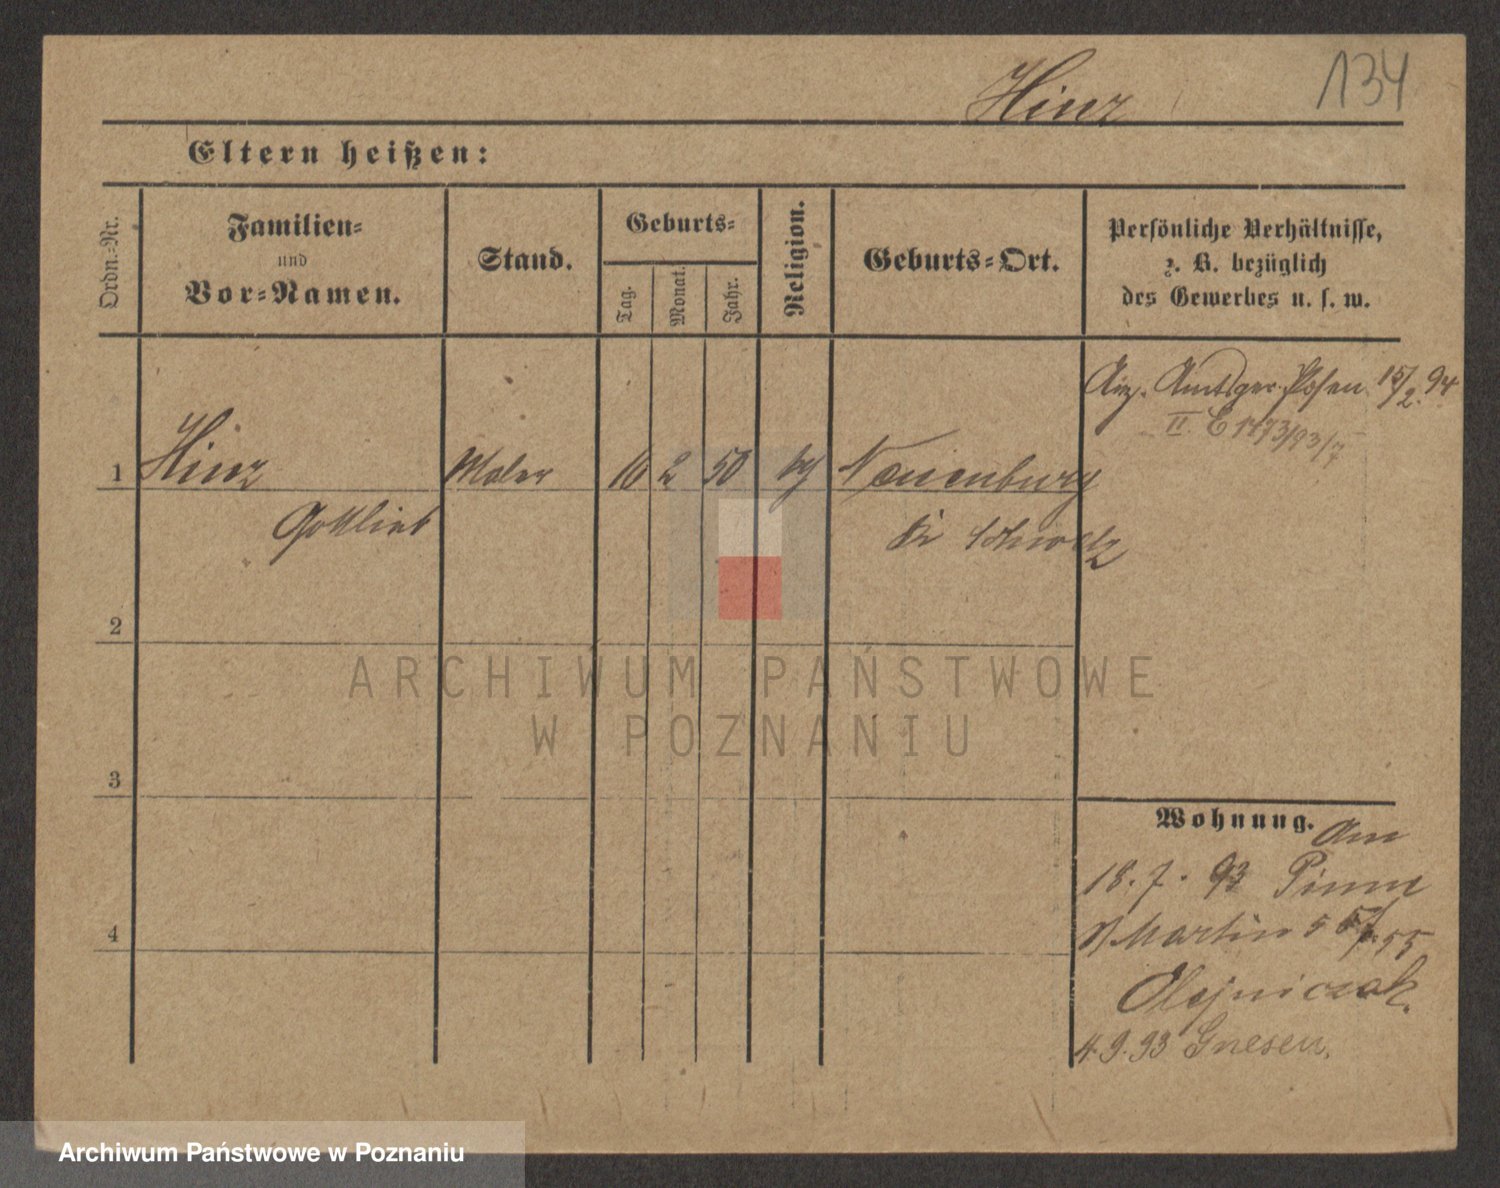 Hinz
134
Eltern heißen:
Ordn.-Nr.
Familien-
und
Vor-Namen.
Stand.
Geburts-
Tag.
Monat.
Jahr.
Religion.
Geburts-Ort.
Persönliche Verhältnisse,
z. B. bezüglich
des Gewerbes u. s. w.
Amtsger. Posen 15/2. 94
II. E 1773/93/7
1 Hinz Maler 10 2 50 Neuenburg
Gottlieb Kr Schwetz
2
3
4
Wohnung. Am
18.7.93 Pinne
St Martin
Olejniczak.
4.9.93 Gnesen.
ARCHIWUM PAŃSTWOWE
W POZNANIU
Archiwum Państwowe w Poznaniu